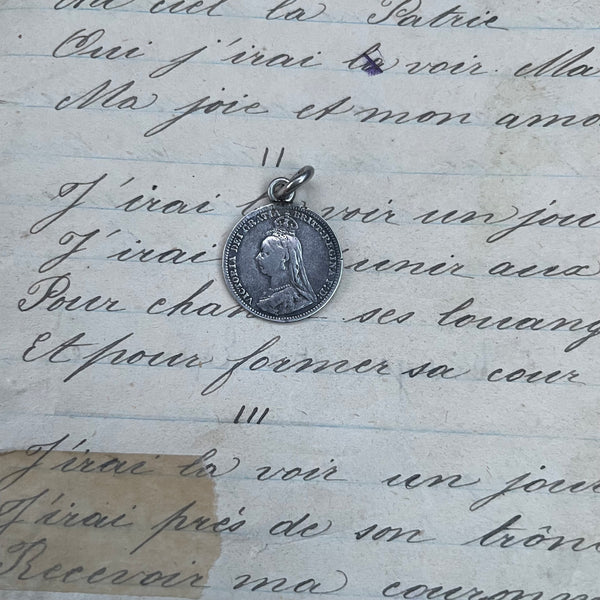 Au ciel la Patrie
Oui j'irai la voir Ma
Ma joie et mon amo
II
J'irai la voir un jou
J'irai unir aux
Pour chan ses louang
Et pour former sa cour
III
J'irai la voir un jour
J'irai près de son trône
Recevoir ma couronn
VICTORIA DEI GRATIA BRITT: REGINA F:D: